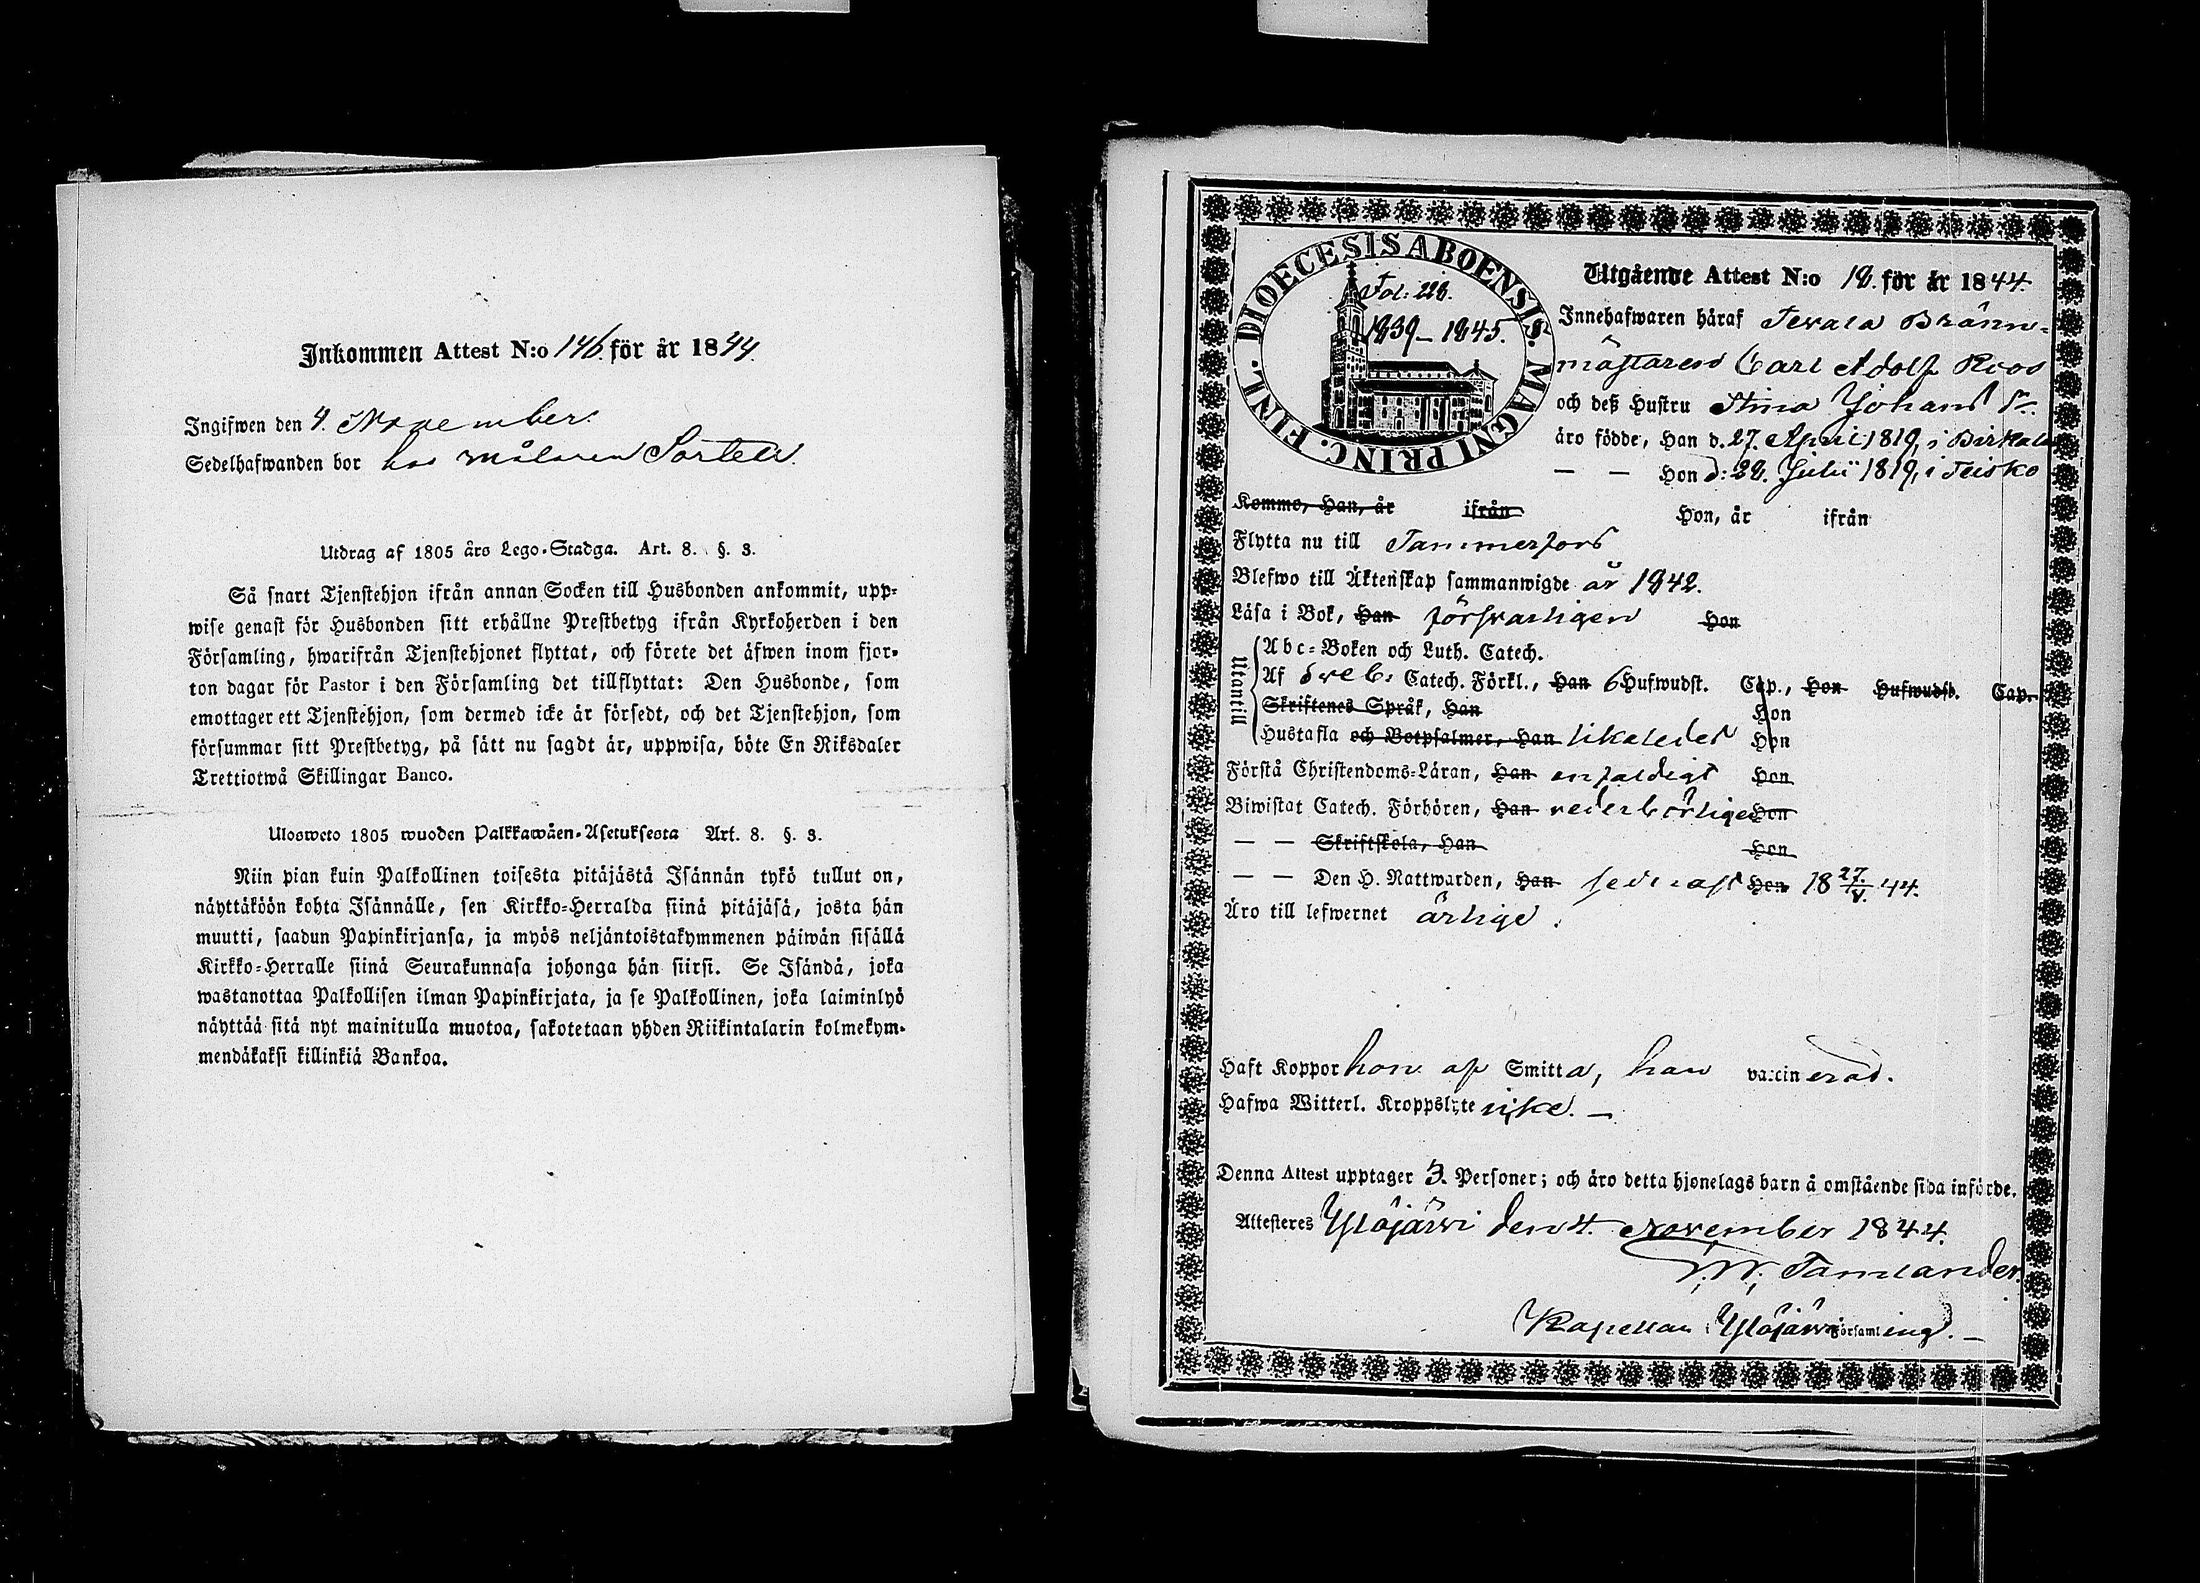 Inkommen Attest N:o 146. för år 1844.
Ingifwen den 4. November.
Sedelhafwanden bor hos målaren
Utdrag af 1805 års Lego-Stadga. Art. 8. §. 3.
Så snart Tjenstehjon ifrån annan Socken till Husbonden ankommit, upp-
wise genast för Husbonden sitt erhållne Prestbetyg ifrån Kyrkoherden i den
Församling, hwarifrån Tjenstehjonet flyttat, och förete det äfwen inom fjor-
ton dagar för Pastor i den Församling det tillflyttat: Den Husbonde, som
emottager ett Tjenstehjon, som dermed icke är försedt, och det Tjenstehjon, som
försummar sitt Prestbetyg, på sätt nu sagdt är, uppwisa, böte En Riksdaler
Trettiotwå Skillingar Banco.
Ulosweto 1805 wuoden Palkkawäen-Asetuksesta Art. 8. §. 3.
Niin pian kuin Palkollinen toisesta pitäjästä Isännän tykö tullut on,
näyttäköön kohta Isännälle, sen Kirkko-Herralda siinä pitäjäsä, josta hän
muutti, saadun Papinkirjansa, ja myös neljäntoistakymmenen päiwän sisällä
Kirkko-Herralle siinä Seurakunnasa johonga hän siirsi. Se Isändä, joka
wastanottaa Palkollisen ilman Papinkirjata, ja se Palkollinen, joka laiminlyö
näyttää sitä nyt mainitulla muotoa, sakotetaan yhden Riikintalarin kolmekym-
mendäkaksi killinkiä Bankoa.
DIOECESIS ABOENSIS. MAGNI PRINC. FINL.
Fol: 226.
1839-1845.
Utgående Attest N:o 18. för år 1844.
Innehafwaren häraf Bränn-
mästaren Carl Adolf Roos
och deß Hustru Stina Johans Dr.
äro födde, Han d. 27. April 1819, i Birkala
— — Hon d: 28. Julii 1819, i Teisko
Kommo, Han, år ifrån Hon, år ifrån
Flytta nu till Tammerfors
Blefwo till Äktenskap sammanwigde år 1842.
Läsa i Bok, Han försvarligen Hon
Utantill
Abc-Boken och Luth. Catech.
Af Sveb. Catech. Förkl., Han 6 Hufwudst. Cap., Hon Hufwudst. Cap.
Skriftenes Språk, Han Hon
Hustafla och Botpsalmer, Han likaledes Hon
Förstå Christendoms-Läran, Han enfaldigt Hon
Biwistat Catech. Förhören, Han vederbörligen Hon
— — Skriftskola, Han Hon
— — Den H. Nattwarden, Han sednast Hon 18 27/V. 44.
Äro till lefwernet ärlige.
Haft Koppor hon af Smitta, han vaccinerad.
Hafwa Witterl. Kroppslyte icke. —
Denna Attest upptager 3. Personer; och äro detta hjonelags barn å omstående sida införde.
Attesteres Ylöjärvi den 4. November 1844.
Tamlander.
Kapellan i Ylöjärvi Församling. —